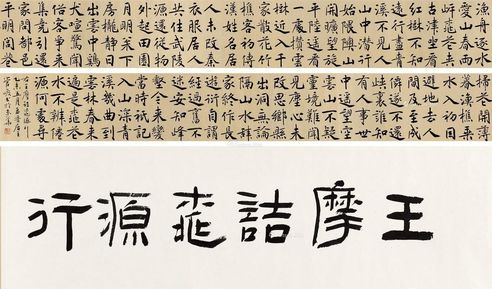 漁舟逐水
愛山春兩
岸桃花夾
古津坐看
紅樹不知
遠行盡青
溪不見人
山中潛行
始隈隩山
開曠望旋
平陸遙看
一處攢雲
樹近入千
家散花竹
樵客初傳
漢姓名居
人未改秦
衣服居人
共住武陵
源還從物
外起田園
月明松下
房櫳靜日
出雲中雞
犬喧驚聞
俗客爭來
集競引還
家問都邑
平明閭巷
掃花開薄
暮漁樵乘
水入初因
避地去人
間及至成
仙遂不還
峽裏誰知
有人事世
中遙望空
雲山不疑
靈境難聞
見塵心未
盡思鄉縣
出洞無論
隔山水辭
家終作長
遊衍自謂
經過舊不
迷安知峰
壑今來變
當時祇記
入山深青
溪幾度到
雲林春來
遍是桃花
水不辨仙
源何處尋
王摩詰桃源行